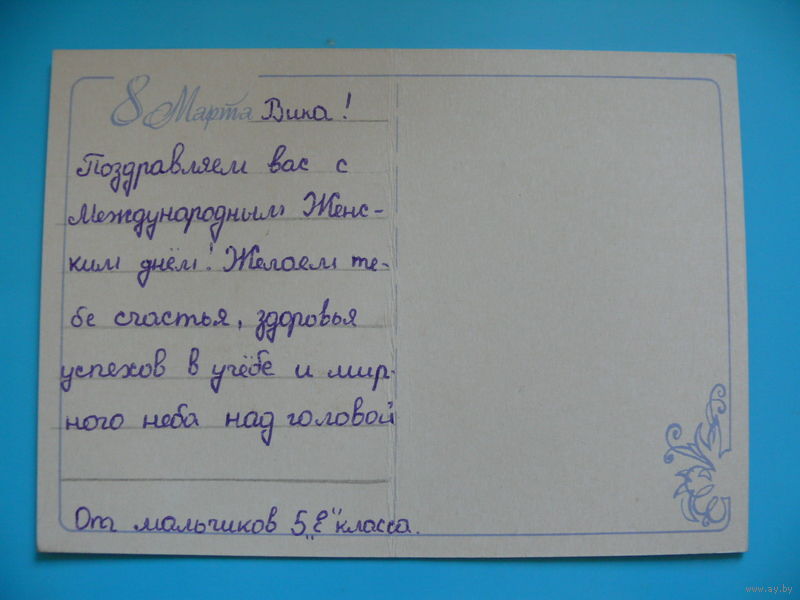 8 Марта Вика!
Поздравляем вас с
Международным Женс-
ким днём! Желаем те-
бе счастья, здоровья
успехов в учёбе и мир-
ного неба над головой
От мальчиков 5 „Е" класса.
www.ay.by